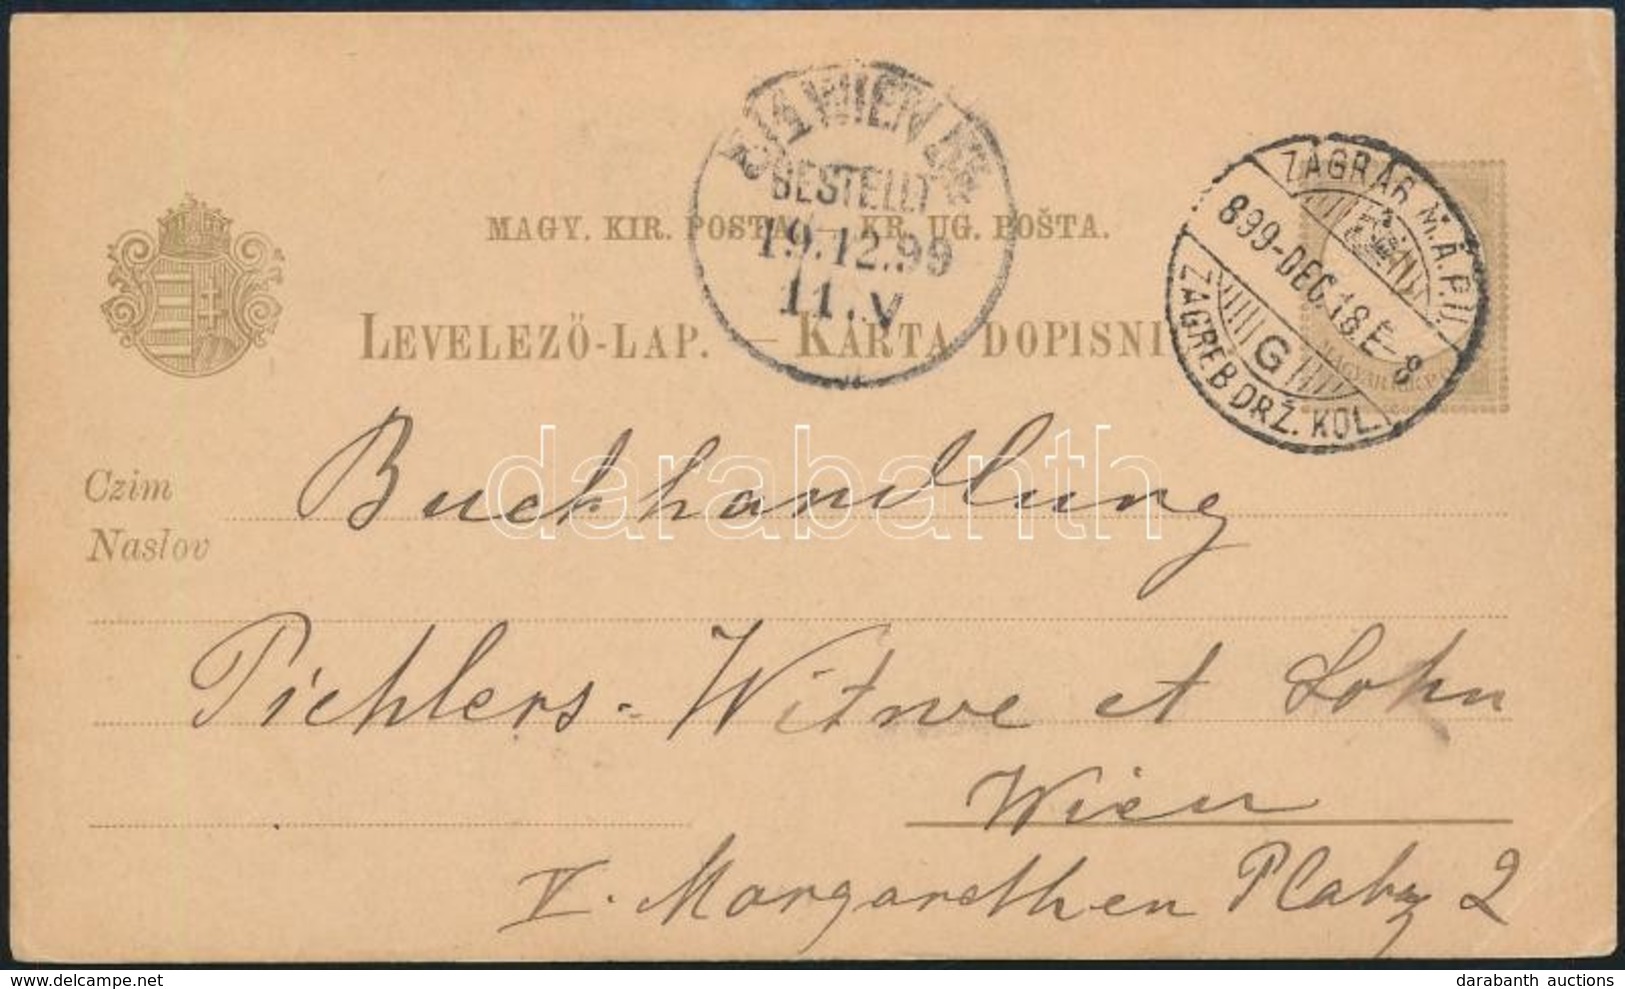 WIEN
BESTELLT
19.12.99
11.V
ZÁGRÁB M.Á.P.U.
899-DEC.18.E-8
G
ZAGREB DRŽ. KOL.
MAGY. KIR. POSTA. — KR. UG. POŠTA.
LEVELEZŐ-LAP. — KARTA DOPISNI
MAGYAR KIR. P
Czim
Naslov
Buchhandlung
darabanth
Pichlers-Witwe et Sohn
Wien
V. Margarethen Platz 2
delcampe.net
darabanth auctions